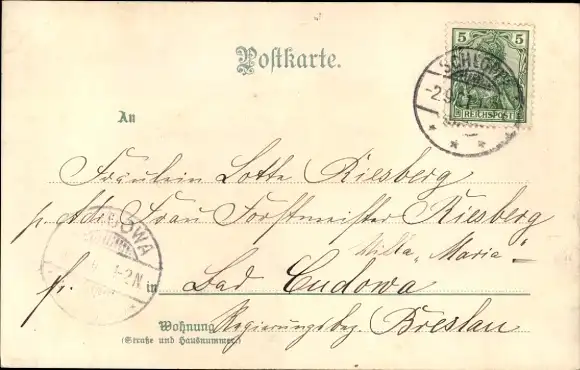 Postkarte.
5 5
REICHSPOST
-2.9.
An
Fräulein Lotte Riesberg
p. Adr. Frau Forstmeister Riesberg
Villa „Maria"
fr. in Bad Cudowa
Wohnung Regierungsbez. Breslau
(Straße und Hausnummer)